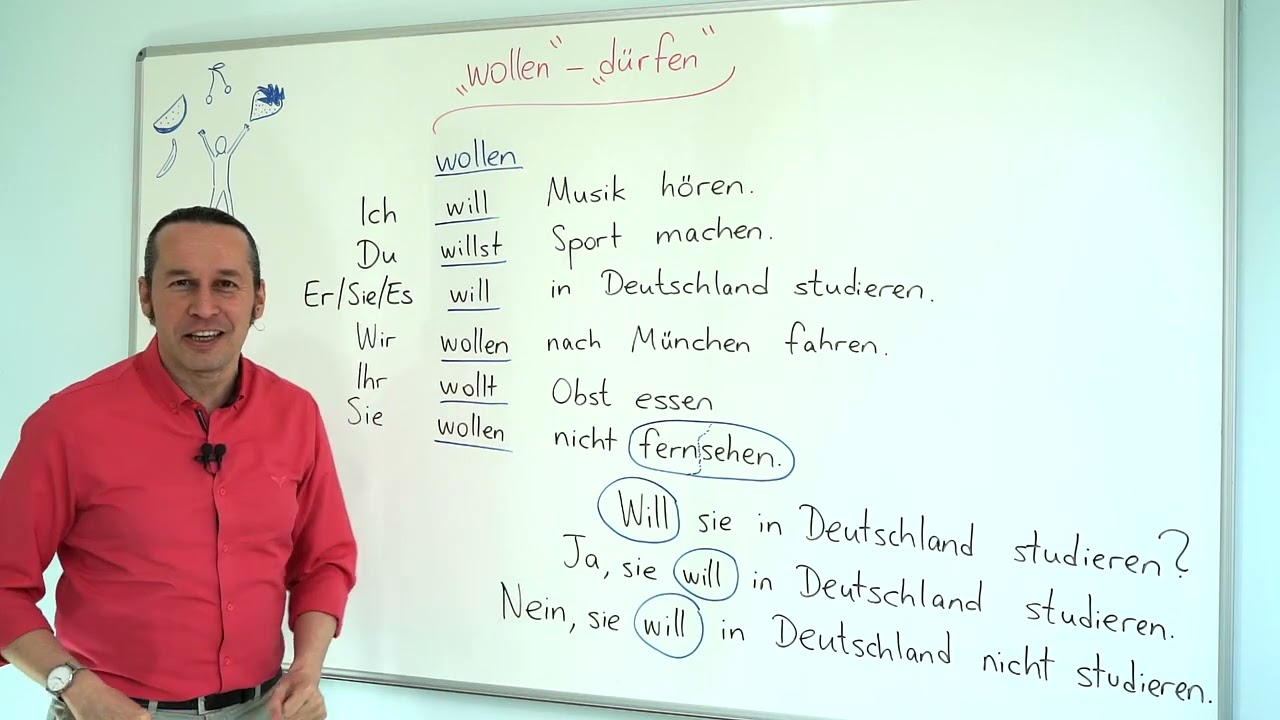 „wollen“ – „dürfen“
wollen
Ich will Musik hören.
Du willst Sport machen.
Er/Sie/Es will in Deutschland studieren.
Wir wollen nach München fahren.
Ihr wollt Obst essen
Sie wollen nicht fernsehen.
Will sie in Deutschland studieren?
Ja, sie will in Deutschland studieren.
Nein, sie will in Deutschland nicht studieren.